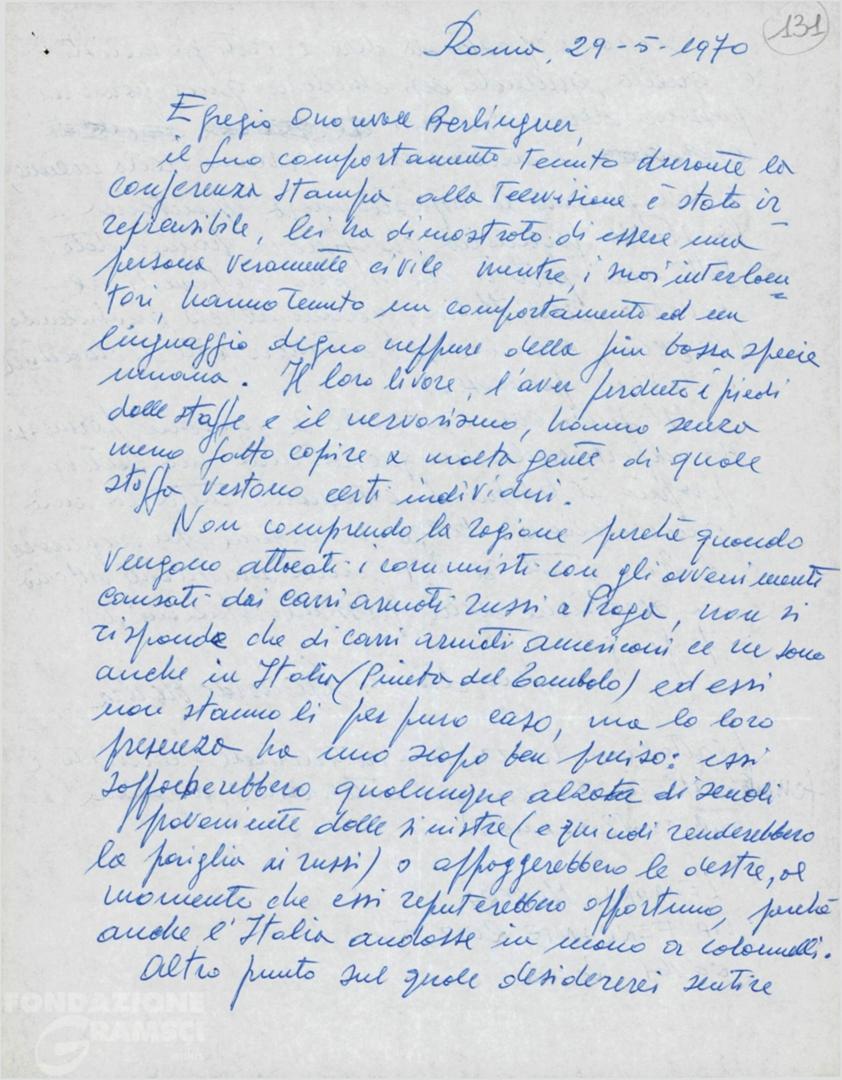 131
Roma, 29-5-1970
Egregio Onorevole Berlinguer,
il Suo comportamento tenuto durante la
conferenza stampa alla Televisione è stato ir
reprensibile, lei ha dimostrato di essere una
persona veramente civile mentre, i suoi interlocu
tori, hanno tenuto un comportamento ed un
linguaggio degno neppure della più bassa specie
umana. Il loro livore, l'aver perduto i piedi
dalle staffe e il nervosismo, hanno senza
meno fatto capire a molta gente di quale
stoffa vestono certi individui.
Non comprendo la ragione perchè quando
vengono attaccati i comunisti con gli avvenimenti
causati dai carri armati russi a Praga, non si
risponde che di carri armati americani ce ne sono
anche in Italia (Pineta del Tombolo) ed essi
non stanno lì per puro caso, ma la loro
presenza ha uno scopo ben preciso: essi
soffocherebbero qualunque alzata di scudi
proveniente dalle sinistre (e quindi renderebbero
la pariglia ai russi) o appoggerebbero le destre, al
momento che essi reputerebbero opportuno, perchè
anche l'Italia andasse in mano ai colonnelli.
Altro punto sul quale desidererei sentire
FONDAZIONE
GRAMSCI